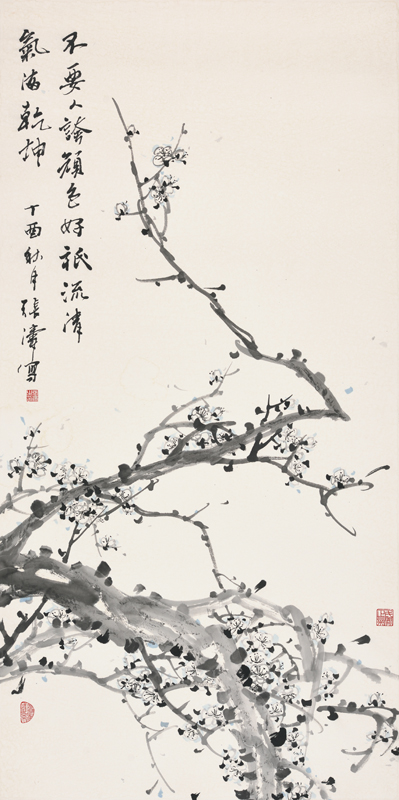 不要人誇顏色好祇流清
氣滿乾坤
丁酉秋月張濤寫